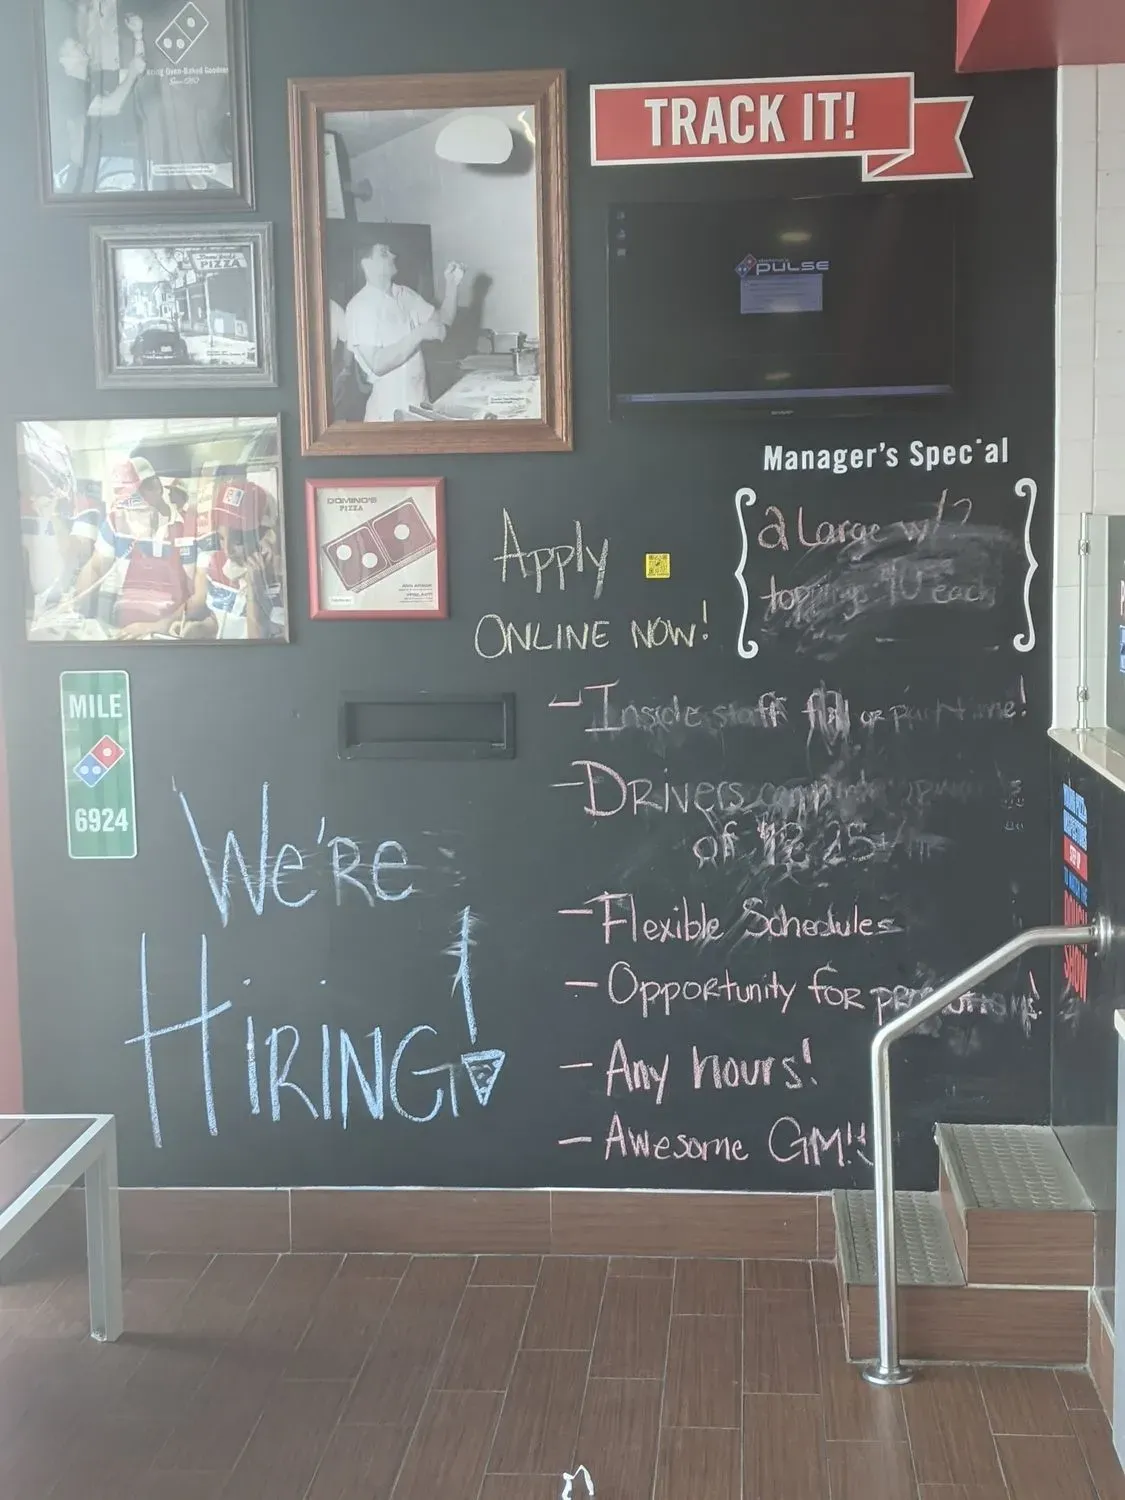 Since 1960
PIZZA
TRACK IT!
domino's
PULSE
SHARP
Manager's Spec al
2 Large w/2
toppings 10 each
DOMINO'S
PIZZA
Apply
ONLINE NOW!
- Inside staff full or part me!
- DRIVERS
of 12 25
- Flexible Schedules
- Opportunity for promotions!
- Any hours!
- Awesome GM!!
MILE
6924
We're
HIRING!
SHOW